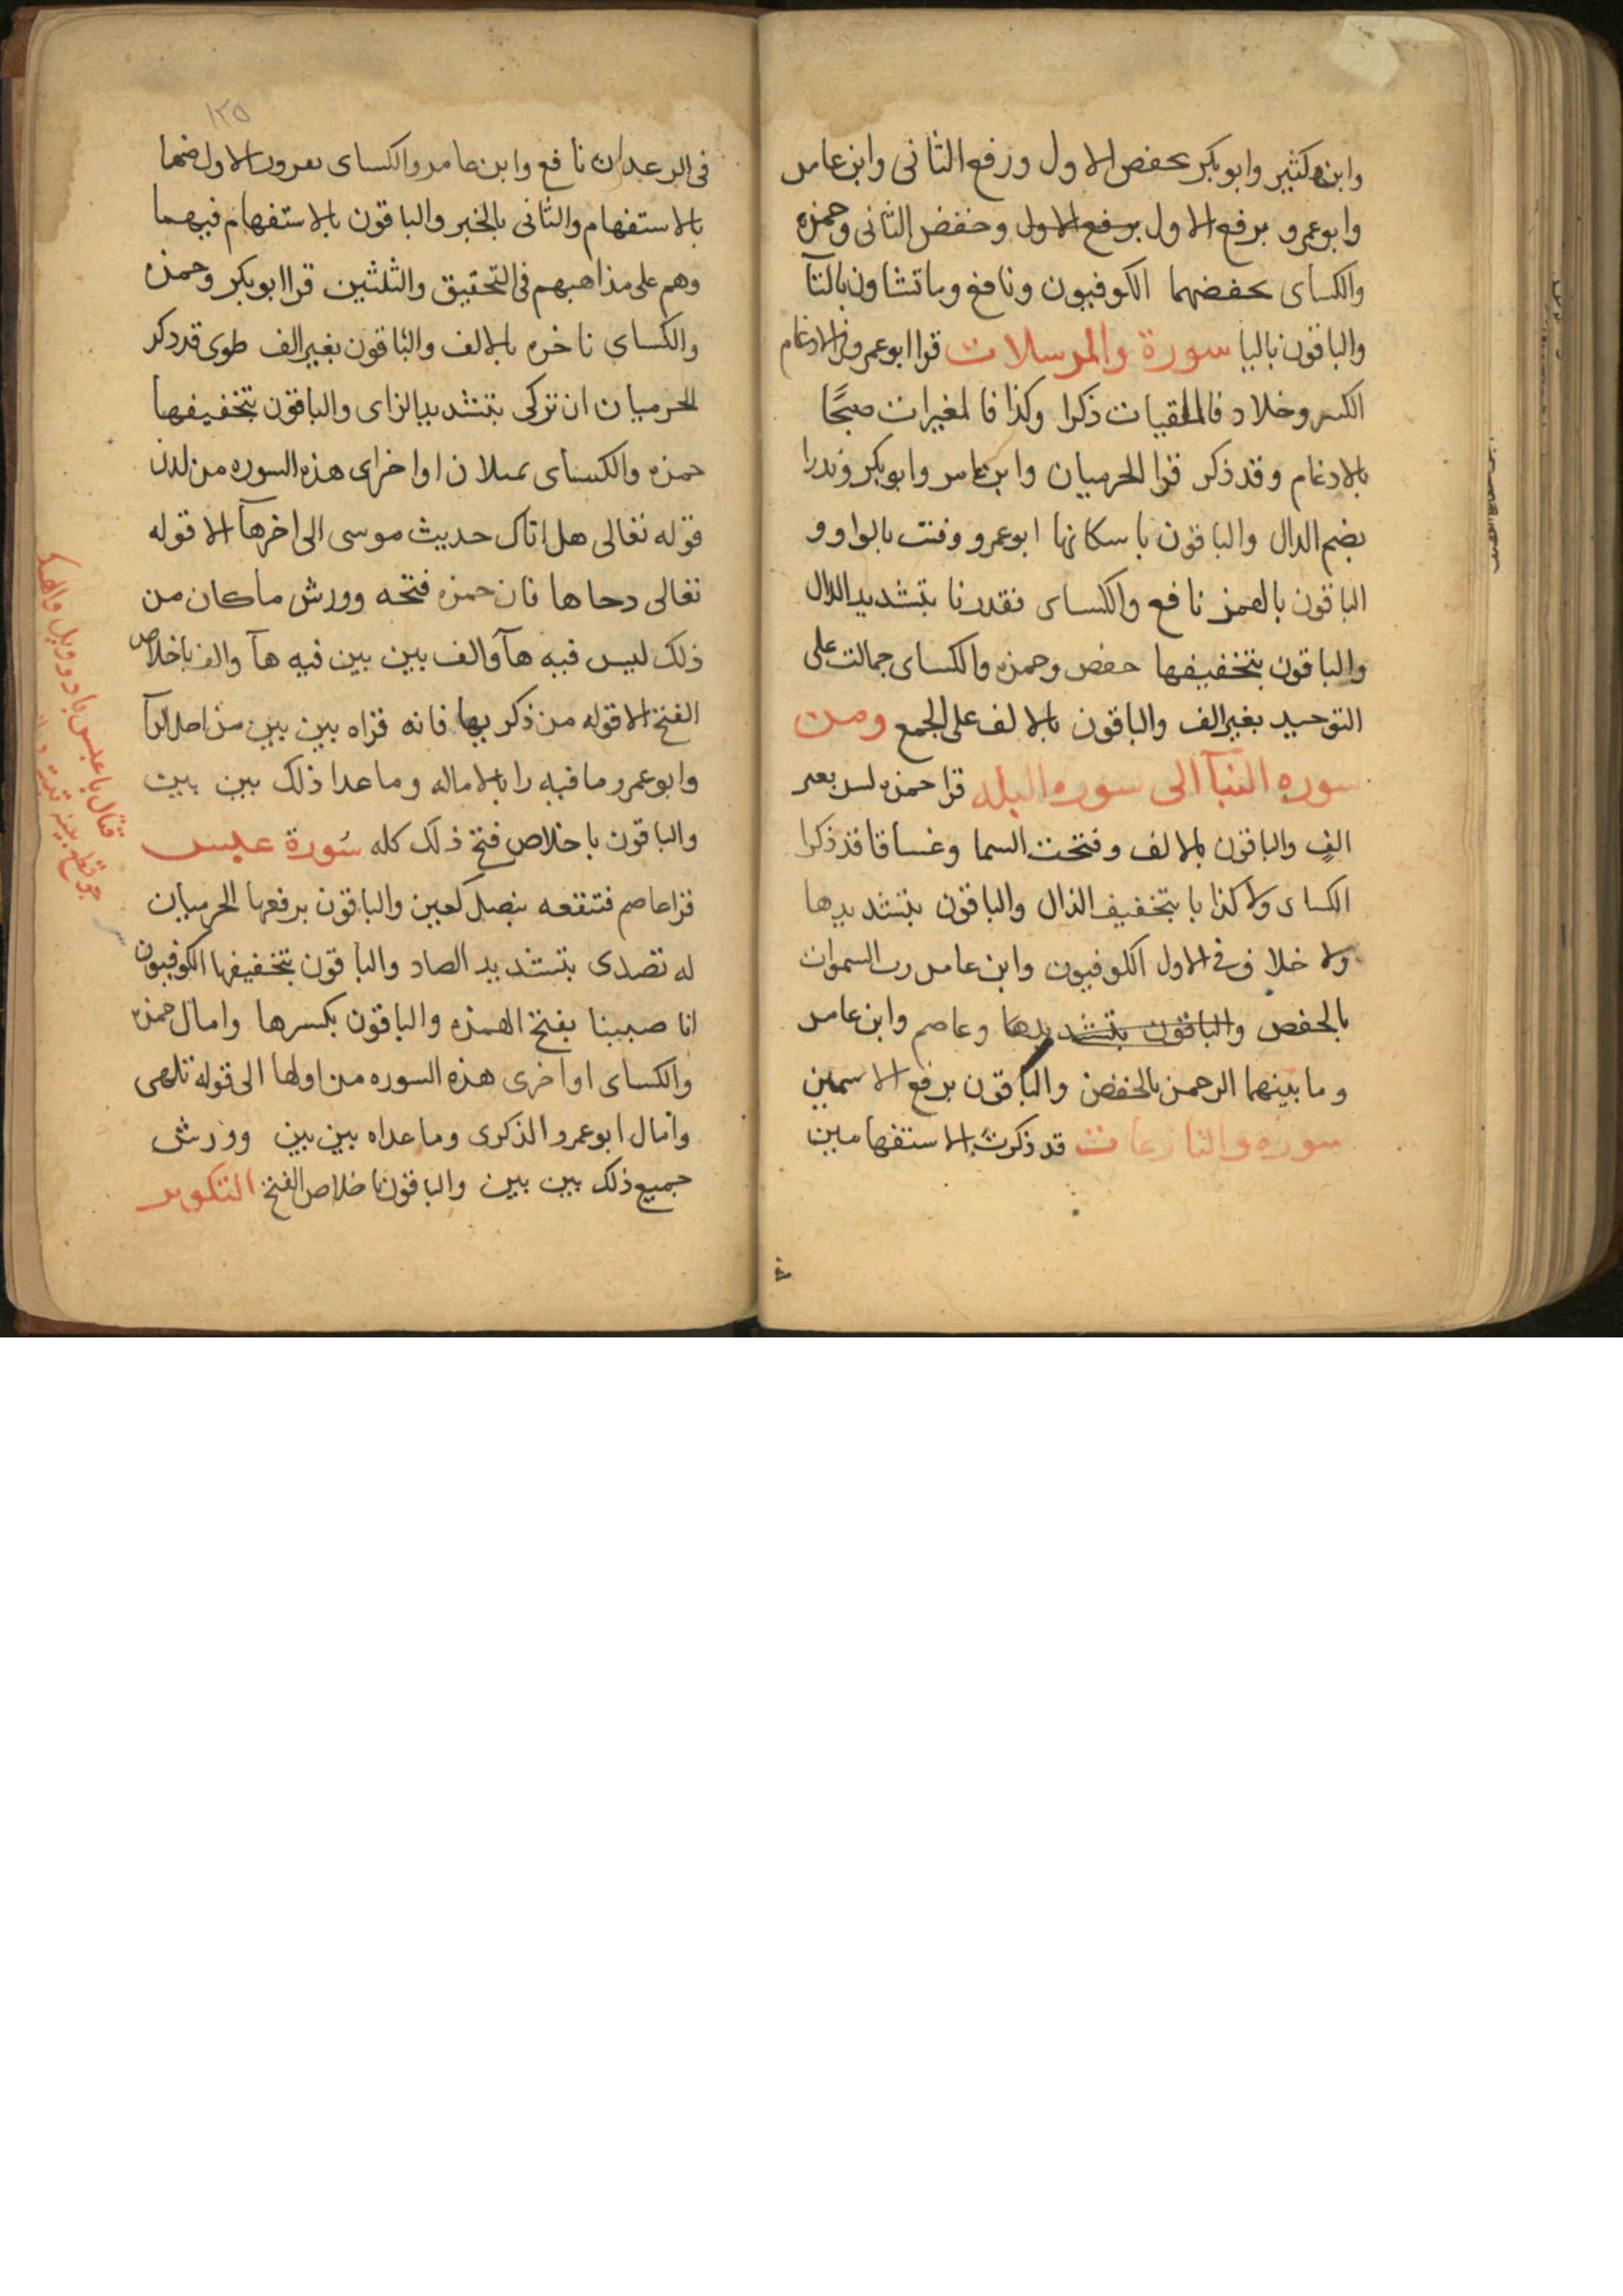 وابن كثير وابو بكر بحفض الاول ورفع الثانى وابن عامر
وابو عمرو برفع الاول برفع الاول وخفض الثانى وحمزه
والكساى بحفضهما الكوفيون ونافع وما تشاون بالتآ
والباقون باليا سورة والمرسلات قرا ابو عمرو فى الادغام
الكبير وخلاد فالملقيات ذكرا وكذا فالمغيرات صبحًا
بالادغام وقد ذكر قرا الحرميان وابن عامر وابو بكر ونذرا
بضم الدال والباقون باسكانها ابو عمرو وقتت بالواو و
الباقون بالهمز نافع والكساى فقدرنا بتشديد الدال
والباقون بتخفيفها حفص وحمزه والكساى جمالت على
التوحيد بغير الف والباقون بالالف على الجمع ومن
سوره النبآ الى سوره البلد قرا حمزه لبثين بغير
الف والباقون بالالف وفتحت السما وغساقا قد ذكرا
الكساى ولا كذابا بتخفيف الذال والباقون بتشديدها
ولا خلاف فى الاول الكوفيون وابن عامر رب السموات
بالخفض والباقون بتشديدها وعاصم وابن عامر
وما بينهما الرحمن بالخفض والباقون برفع الاسمين
سوره والنازعات قد ذكرت الاستفهامين
١٢٥
فى الرعد ان نافع وابن عامر والكساى يقرون الاول منهما
بالاستفهام والثانى بالخبر والباقون بالاستفهام فيهما
وهم على مذاهبهم فى التحقيق والتلثين قرا ابو بكر وحمزه
والكساى ناخره بالالف والباقون بغير الف طوى قد ذكر
الحرميان ان تزكى بتشديد الزاى والباقون بتخفيفها
حمزه والكساى يميلان اواخر اى هذه السوره من لدن
قوله تعالى هل اتاك حديث موسى الى اخرهآ الا قوله
تعالى دحاها فان حمزه فتحه وورش ما كان من
ذلك ليس فيه هآ والف بين بين فيه هآ والف باخلاص
الفتح الا قوله من ذكريها فانه قراه بين بين من اجل الرآ
وابو عمرو ما فيه را بالاماله وما عدا ذلك بين بين
والباقون باخلاص فتح ذلك كله سُورة عبس
قرا عاصم فتنفعه بنصب العين والباقون برفعها الحرميان
له تصدى بتشديد الصاد والباقون بتخفيفها الكوفيون
انا صببنا بفتح الهمزه والباقون بكسرها وامال حمزه
والكساى اواخر اى هذه السوره من اولها الى قوله تلهى
وامال ابو عمرو الذكرى وما عداه بين بين وورش
جميع ذلك بين بين والباقون باخلاص الفتح التكوير